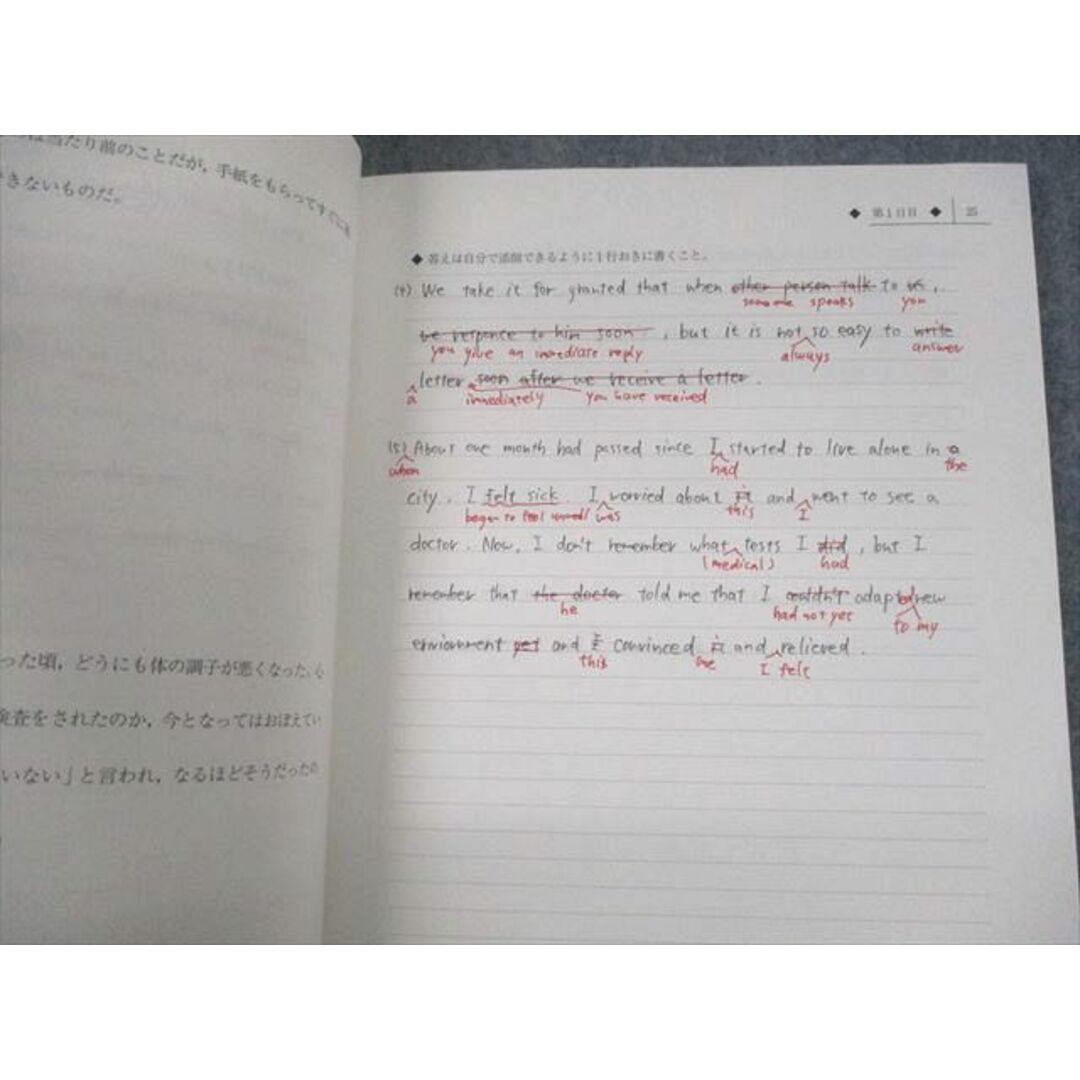 当たり前のことだが，手紙をもらってすぐに返
きないものだ。
った頃，どうにも体の調子が悪くなった。心
検査をされたのか，今となってはおぼえてい
いない」と言われ，なるほどそうだったの
◆ 第1日目 ◆ 25
◆ 答えは自分で添削できるように1行おきに書くこと。
(4) We take it for granted that when other person talk to us,
someone speaks you
we responce to him soon, but it is not so easy to write
you give an immediate reply always answer
letter soon after we receive a letter.
a immediately you have received
(5) About one month had passed since I started to live alone in a
when had the
city. I felt sick. I worried about it and went to see a
began to feel was this I
doctor. Now, I don't remember what tests I did, but I
(medical) had
remember that the doctor told me that I couldn't adapted new
he had not yet to my
enviornment yet and I convinced it and relieved.
this me I felt